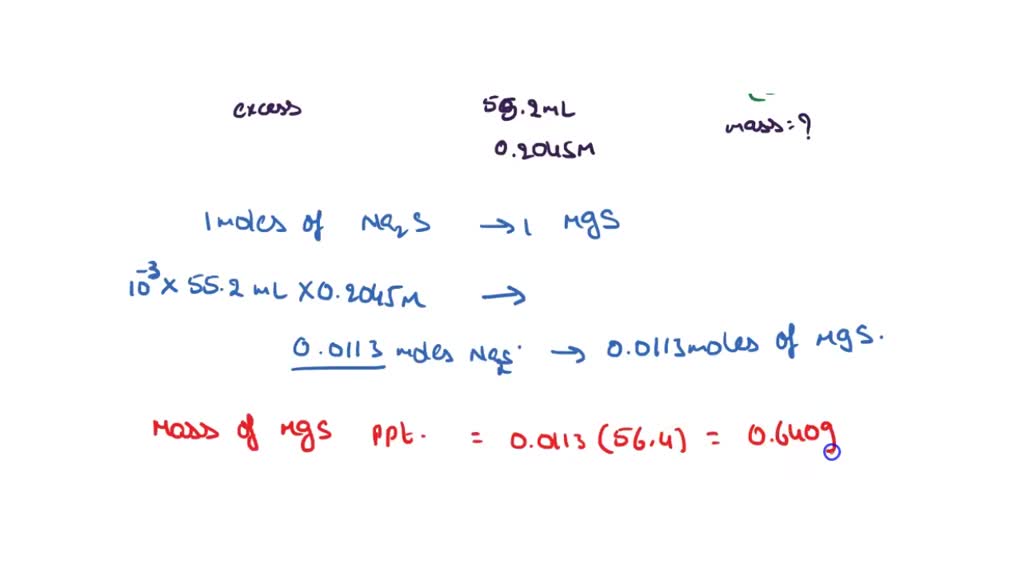 excess 55.2mL
mass=?
0.2045M
1 moles of Na2S → 1 MgS
10^-3 x 55.2 mL x 0.2045M →
0.0113 moles Na2S → 0.0113 moles of MgS.
Mass of MgS ppt. = 0.0113 (56.4) = 0.640g